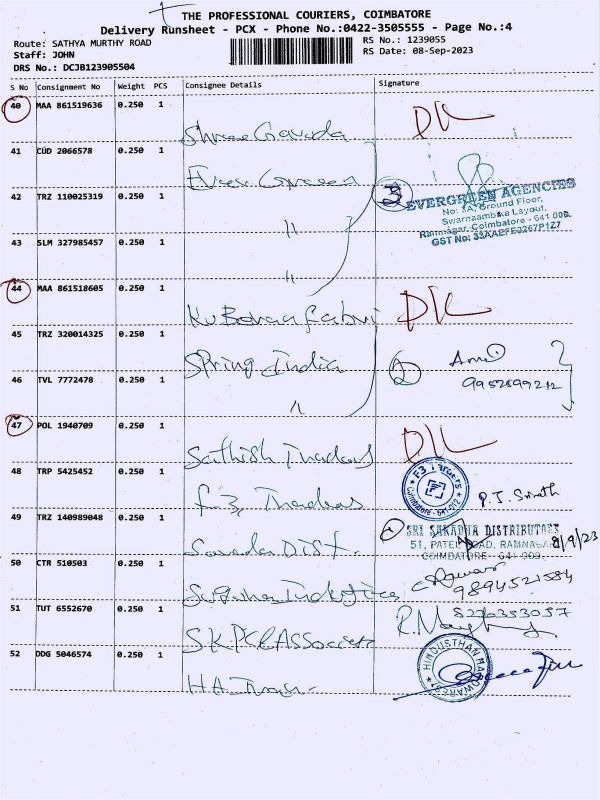 THE PROFESSIONAL COURIERS, COIMBATORE
Delivery Runsheet - PCX - Phone No.:0422-3505555 - Page No.:4
Route: SATHYA MURTHY ROAD RS No.: 1239055
Staff: JOHN RS Date: 08-Sep-2023
DRS No.: DCJB123905504
S No Consignment No Weight PCS Consignee Details Signature
40 MAA 861519636 0.250 1
Shree Gowda
41 CUD 2066578 0.250 1
Ever Green
42 TRZ 110025319 0.250 1
3 EVERGREEN AGENCIES
No: 3A, Ground Floor,
Swarnaambika Layout,
Ramnagar, Coimbatore - 641 009.
GST No: 33AAEFE2267P1Z7
"
43 SLM 327985457 0.250 1
"
44 MAA 861518605 0.250 1
45 TRZ 320014325 0.250 1
Spring India
2
46 TVL 7772478 0.250 1
9952899212
"
47 POL 1940709 0.250 1
Sathish Traders
48 TRP 5425452 0.250 1
F3 Traders
Coimbatore - 641 012
F-3 Traders
49 TRZ 140989048 0.250 1
SRI SARADHA DISTRIBUTORS
51, PATEL ROAD, RAMNAGAR
COIMBATORE - 641 009.
8/9/23
Sarada Dist.
50 CTR 510503 0.250 1
9894521584
51 TUT 6552670 0.250 1
S K P C & Associates
52 DDG 5046574 0.250 1
HINDUSTHAN HARDWARES